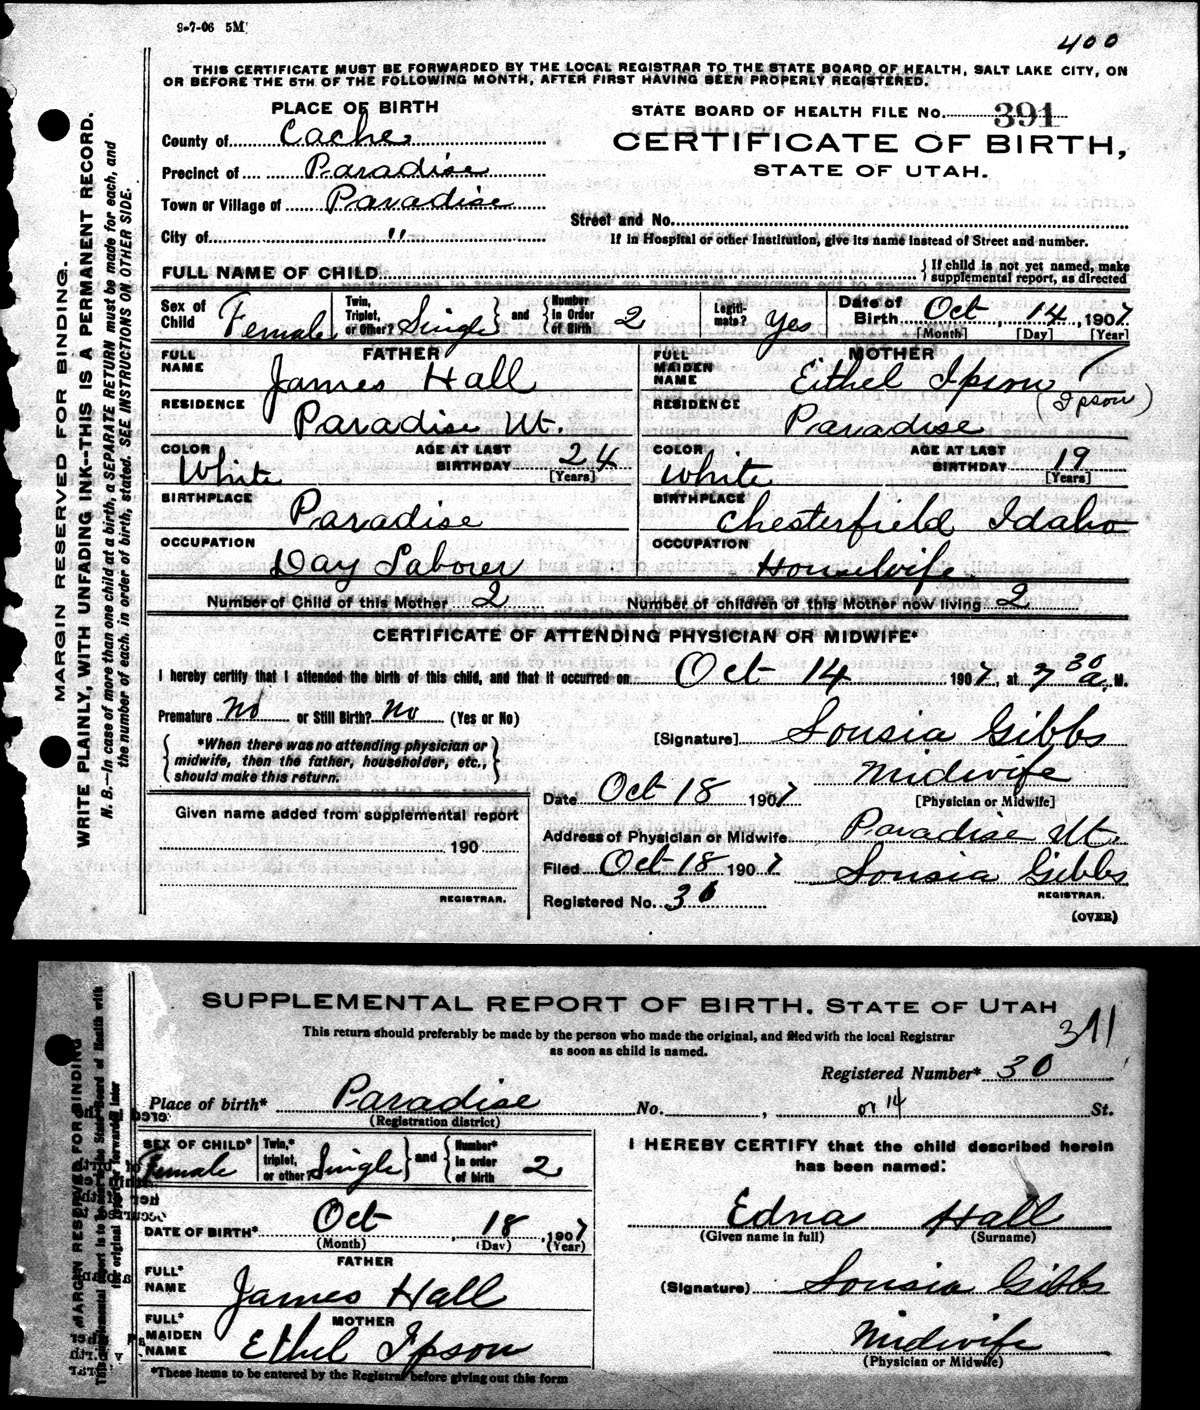 9-7-06 5M
400
THIS CERTIFICATE MUST BE FORWARDED BY THE LOCAL REGISTRAR TO THE STATE BOARD OF HEALTH, SALT LAKE CITY, ON
OR BEFORE THE 5TH OF THE FOLLOWING MONTH, AFTER FIRST HAVING BEEN PROPERLY REGISTERED.
MARGIN RESERVED FOR BINDING.
WRITE PLAINLY, WITH UNFADING INK--THIS IS A PERMANENT RECORD.
N. B.--In case of more than one child at a birth, a SEPARATE RETURN must be made for each, and
the number of each, in order of birth, stated. SEE INSTRUCTIONS ON OTHER SIDE.
PLACE OF BIRTH
County of Cache
Precinct of Paradise
Town or Village of Paradise
City of "
STATE BOARD OF HEALTH FILE No. 391
CERTIFICATE OF BIRTH,
STATE OF UTAH.
Street and No.
If in Hospital or other Institution, give its name instead of Street and number.
FULL NAME OF CHILD { If child is not yet named, make
supplemental report, as directed
Sex of Child Female Twin, Triplet, or Other? Single } and { Number in Order of Birth 2 Legiti-mate? Yes Date of Birth Oct, 14, 1907
[Month] [Day] [Year]
FATHER
FULL NAME James Hall
RESIDENCE Paradise Ut.
COLOR White AGE AT LAST BIRTHDAY 24
[Years]
BIRTHPLACE Paradise
OCCUPATION Day Laborer
MOTHER
FULL MAIDEN NAME Eithel Ipson
(Ipson)
RESIDENCE Paradise
COLOR White AGE AT LAST BIRTHDAY 19
[Years]
BIRTHPLACE Chesterfield Idaho
OCCUPATION Housewife
Number of Child of this Mother 2 Number of children of this Mother now living 2
CERTIFICATE OF ATTENDING PHYSICIAN OR MIDWIFE*
I hereby certify that I attended the birth of this child, and that it occurred on Oct 14 1907, at 7 30 a. M.
Premature No or Still Birth? No (Yes or No)
{ *When there was no attending physician or
midwife, then the father, householder, etc.,
should make this return. }
[Signature] Sousia Gibbs
Midwife
[Physician or Midwife]
Date Oct 18 1907
Given name added from supplemental report
190
REGISTRAR.
Address of Physician or Midwife Paradise Ut.
Filed Oct 18 1907 Sousia Gibbs
REGISTRAR.
Registered No. 30
(OVER)
SUPPLEMENTAL REPORT OF BIRTH, STATE OF UTAH
391
This return should preferably be made by the person who made the original, and filed with the local Registrar
as soon as child is named.
Registered Number* 30
MARGIN RESERVED FOR BINDING
Place of birth* Paradise No. , or 14 St.
(Registration district)
SEX OF CHILD* Female Twin,* triplet, or other? Single } and { Number* in order of birth 2
DATE OF BIRTH* Oct, 18, 1907
(Month) (Day) (Year)
FATHER
FULL* NAME James Hall
MOTHER
FULL* MAIDEN NAME Ethel Ipson
*These items to be entered by the Registrar before giving out this form
I HEREBY CERTIFY that the child described herein
has been named:
Edna Hall
(Given name in full) (Surname)
(Signature) Sousia Gibbs
Midwife
(Physician or Midwife)